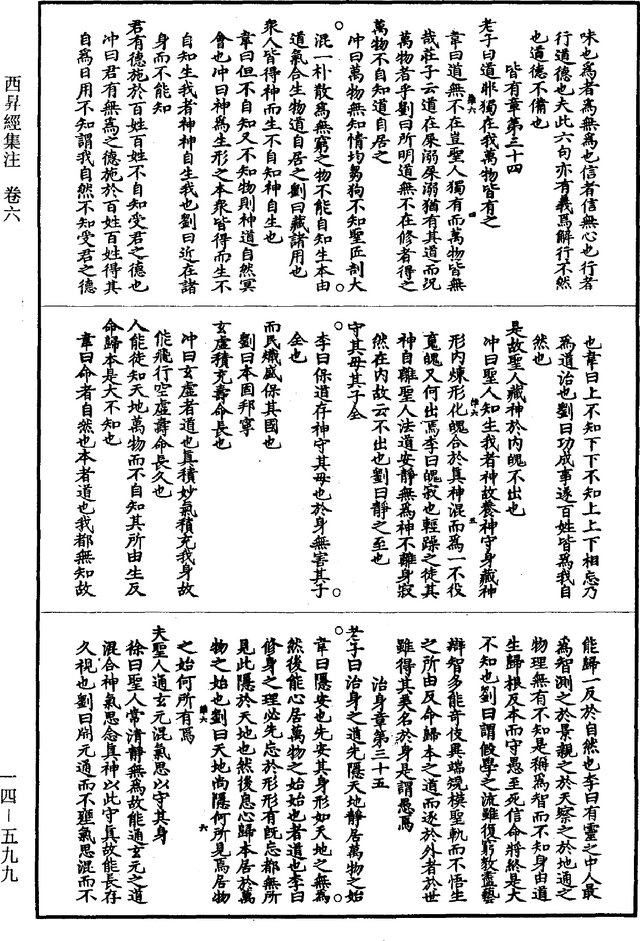 味也爲者爲無爲也信者信無心也行者
行道德也夫此六句亦有義爲解行不然
也道德不備也
皆有章第三十四
老子曰道非獨在我萬物皆有之
韋曰道無不在豈聖人獨有而萬物皆無
哉莊子云道在屎溺屎溺猶有其道而況
萬物者乎劉曰所明道無不在修者得之
萬物不自知道自居之
冲曰萬物無知情均芻狗不知聖匠剖大
混一朴散爲無窮之物不能自知生本由
道氣合生物道自居之劉曰藏諸用也
衆人皆得神而生不自知神自生也
韋曰但不自知又不知物則神道自然冥
會也冲曰神爲生形之本衆皆得而生不
自知生我者神神自生我也劉曰近在諸
身而不能知
君有德施於百姓百姓不自知受君之德也
冲曰君有無爲之德施於百姓百姓得其
自爲日用不知謂我自然不知受君之德
也韋曰上不知下下不知上上下相忘乃
爲道治也劉曰功成事遂百姓皆爲我自
然也
是故聖人藏神於内魄不出也
冲曰聖人知生我者神故養神守身藏神
形内煉形化魄合於真神混而爲一不役
寬魄又何出焉李曰魄寂也輕躁之徒其
神自離聖人法道安靜無爲神不離身寂
然在内故云不出也劉曰靜之至也
守其母其子全
李曰保道存神守其母也於身無害其子
全也
而民熾盛保其國也
劉曰本固邦寧
玄虛積充壽命長也
冲曰玄虛者道也真積妙氣積充我身故
能飛行空虛壽命長久也
人能徒知天地萬物而不自知其所由生反
命歸本是大不知也
韋曰命者自然也本者道也我都無知故
能歸一反於自然也李曰有靈之中人最
爲智測之於景觀之於天察之於地通之
物理無有不知是稱爲智而不知身由道
生歸根反本而守愚至死信命將終是大
不知也劉曰謂假學之流雖復窮數盡藝
辯智多能奇伎異端規模聖軌而不悟生
之所由反命歸本之道而逐於外者於世
雖得其美名於身是謂愚焉
治身章第三十五
老子曰治身之道先隱天地靜居萬物之始
韋曰隱安也先安其身形如天地之無爲
然後能心居萬物之始始也者道也李曰
修身之理必先忘於形形有既忘都無所
見此隱於天地也然後息心歸本居於萬
物之始也劉曰天地尚隱何所見焉居物
之始何所有焉
夫聖人通玄元混氣思以守其身
徐曰聖人常清靜無爲故能通玄元之道
混合神氣思念真神以此守真故能長存
久視也劉曰開元通而不壅氣思混而不
西昇經集注 卷六
一四—五九九